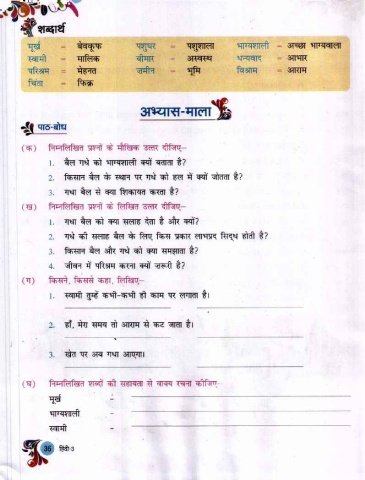 शब्दार्थ
मूर्ख = बेवकूफ पशुघर = पशुशाला भाग्यशाली = अच्छा भाग्यवाला
स्वामी = मालिक बीमार = अस्वस्थ धन्यवाद = आभार
परिश्रम = मेहनत ज़मीन = भूमि विश्राम = आराम
चिंता = फिक्र
अभ्यास-माला
पाठ-बोध
(क) निम्नलिखित प्रश्नों के मौखिक उत्तर दीजिए–
1. बैल गधे को भाग्यशाली क्यों बताता है?
2. किसान बैल के स्थान पर गधे को हल में क्यों जोतता है?
3. गधा बैल से क्या शिकायत करता है?
(ख) निम्नलिखित प्रश्नों के लिखित उत्तर दीजिए–
1. गधा बैल को क्या सलाह देता है और क्यों?
2. गधे की सलाह बैल के लिए किस प्रकार लाभप्रद सिद्ध होती है?
3. किसान बैल और गधे को क्या समझाता है?
4. जीवन में परिश्रम करना क्यों ज़रूरी है?
(ग) किसने, किससे कहा, लिखिए–
1. स्वामी तुम्हें कभी-कभी ही काम पर लगाता है।
2. हाँ, मेरा समय तो आराम से कट जाता है।
3. खेत पर अब गधा आएगा।
(घ) निम्नलिखित शब्दों की सहायता से वाक्य रचना कीजिए–
मूर्ख –
भाग्यशाली –
स्वामी –
36 हिंदी-3